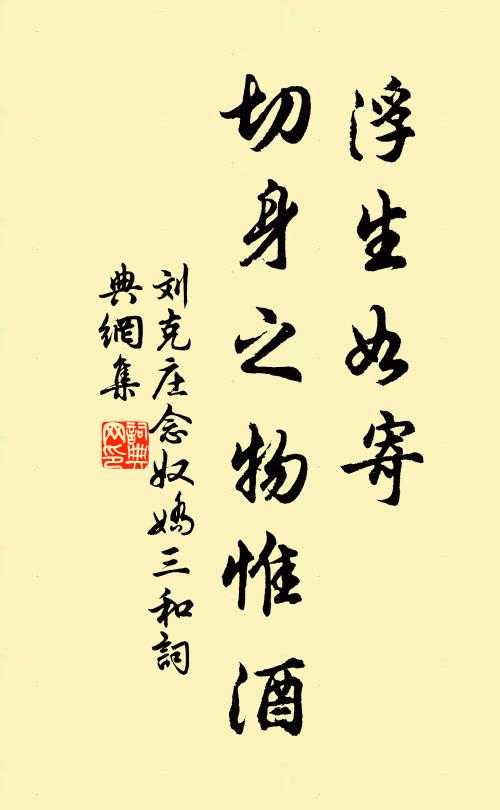 浮生如寄
切身之物惟酒
刘克庄念奴嬌三和詞
典網集
詞典網印